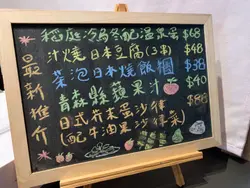 最新推介
稻庭冷烏冬配溫泉蛋 $68
汁燒日本豆腐(3串) $48
菜泡日本燒飯糰 $38
青森縣蘋果汁 $40
日式芥末蛋沙律 $88
(配牛油果沙律菜)